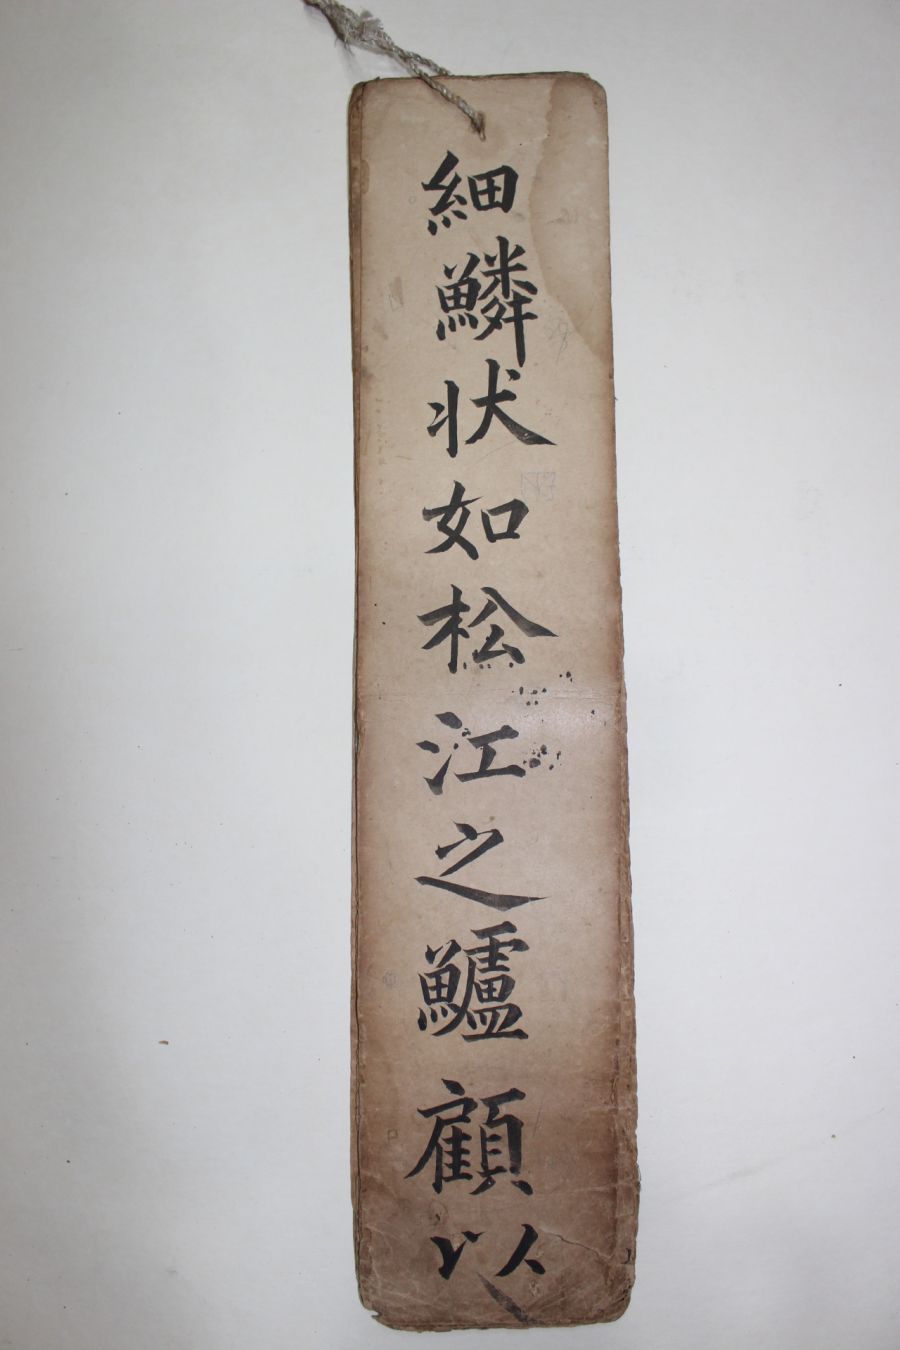 細鱗状如松江之鱸顧以